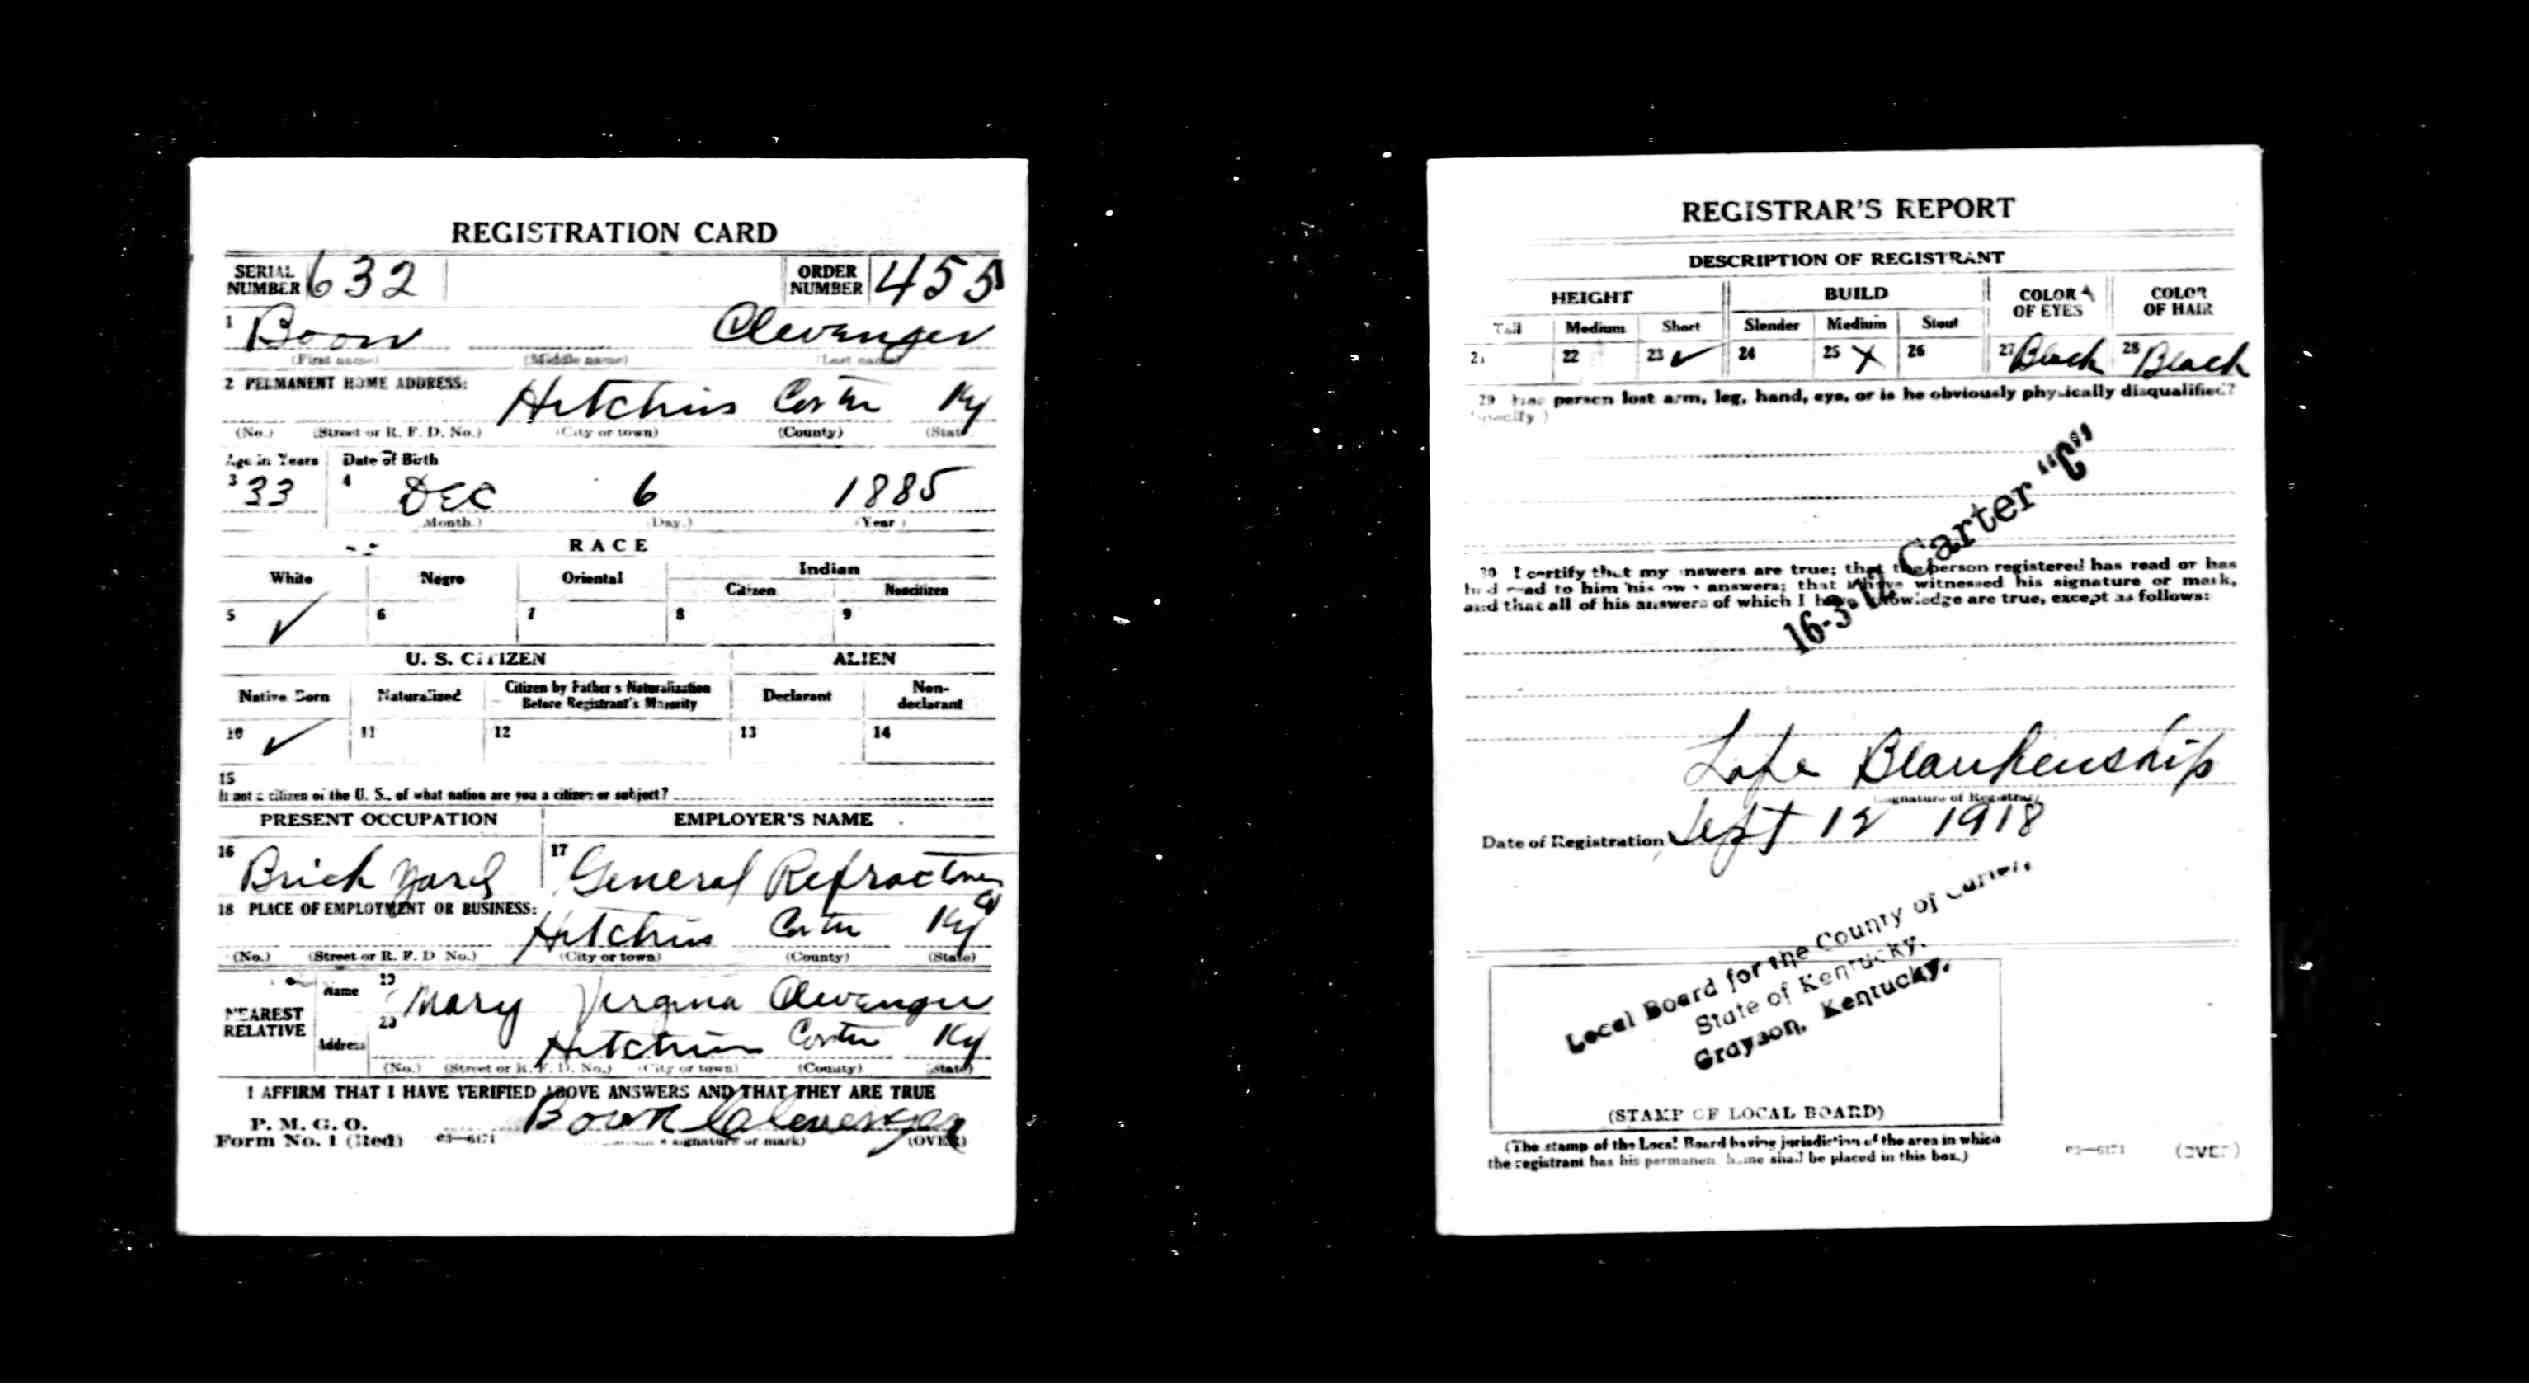 REGISTRATION CARD
SERIAL NUMBER 632 ORDER NUMBER 455
1 Boon Clevenger
(First name) (Middle name) (Last name)
2 PERMANENT HOME ADDRESS:
Hitchins Carter Ky
(No.) (Street or R. F. D. No.) (City or town) (County) (State)
Age in Years Date of Birth
3 33 4 Dec 6 1885
(Month.) (Day.) (Year.)
RACE
White Negro Oriental Indian
Citizen Noncitizen
5 ✓ 6 7 8 9
U. S. CITIZEN ALIEN
Native Born Naturalized Citizen by Father's Naturalization Before Registrant's Majority Declarant Non-declarant
10 ✓ 11 12 13 14
15
If not a citizen of the U. S., of what nation are you a citizen or subject?
PRESENT OCCUPATION EMPLOYER'S NAME
16 Brick Yard 17 General Refractories Co
18 PLACE OF EMPLOYMENT OR BUSINESS:
Hitchins Carter Ky
(No.) (Street or R. F. D. No.) (City or town) (County) (State)
NEAREST RELATIVE
Name 19 Mary Virginia Clevenger
Address 20 Hitchins Carter Ky
(No.) (Street or R. F. D. No.) (City or town) (County) (State)
I AFFIRM THAT I HAVE VERIFIED ABOVE ANSWERS AND THAT THEY ARE TRUE
P. M. G. O.
Form No. 1 (Red) 03—6171 Boon Clevenger
signature or mark) (OVER)
REGISTRAR'S REPORT
DESCRIPTION OF REGISTRANT
HEIGHT BUILD COLOR OF EYES COLOR OF HAIR
Tall Medium Short Slender Medium Stout
21 22 23 ✓ 24 25 X 26 27 Black 28 Black
29 Has person lost arm, leg, hand, eye, or is he obviously physically disqualified?
(Specify.)
16-3-12 Carter "C"
30 I certify that my answers are true; that the person registered has read or has
had read to him his own answers; that I have witnessed his signature or mark,
and that all of his answers of which I have knowledge are true, except as follows:
Lafe Blankenship
(Signature of Registrar)
Date of Registration Sept 12 1918
Local Board for the County of Carter,
State of Kentucky.
Grayson, Kentucky.
(STAMP OF LOCAL BOARD)
(The stamp of the Local Board having jurisdiction of the area in which
the registrant has his permanent home shall be placed in this box.)
03—6171 (OVER)